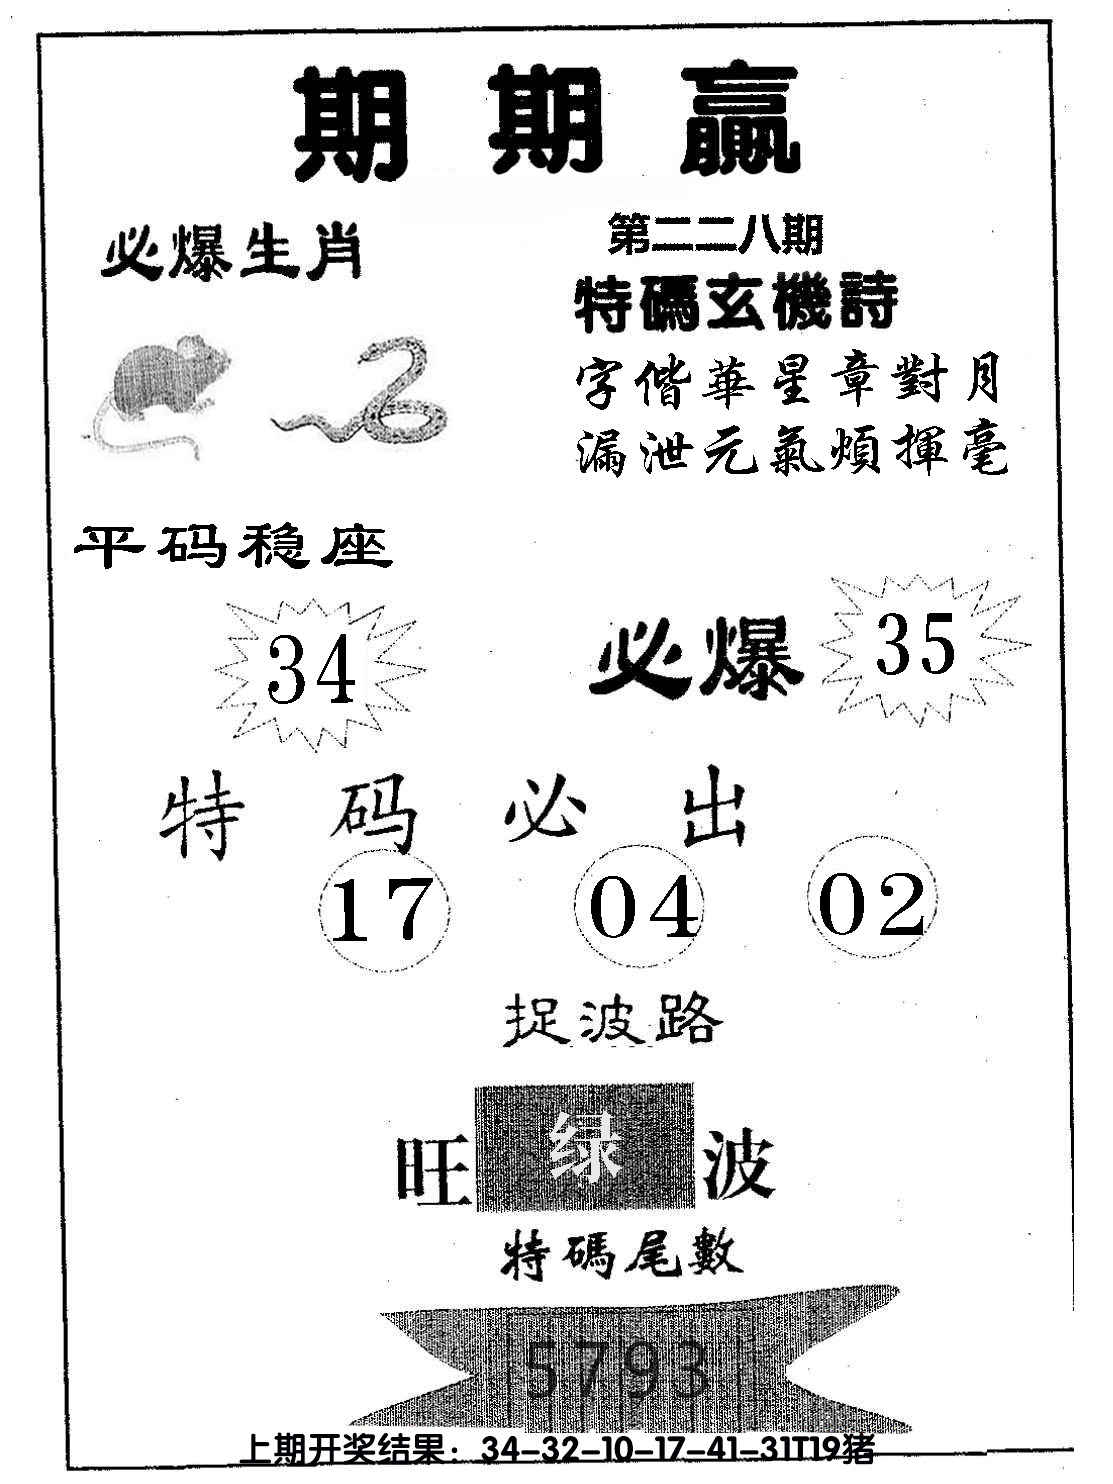 期期赢
必爆生肖
第二二八期
特碼玄機詩
字偕華星章對月
漏泄元氣煩揮毫
平码稳座
34
必爆
35
特码必出
17 04 02
捉波路
旺 绿 波
特碼尾數
5793
上期开奖结果：34-32-10-17-41-31T19猪